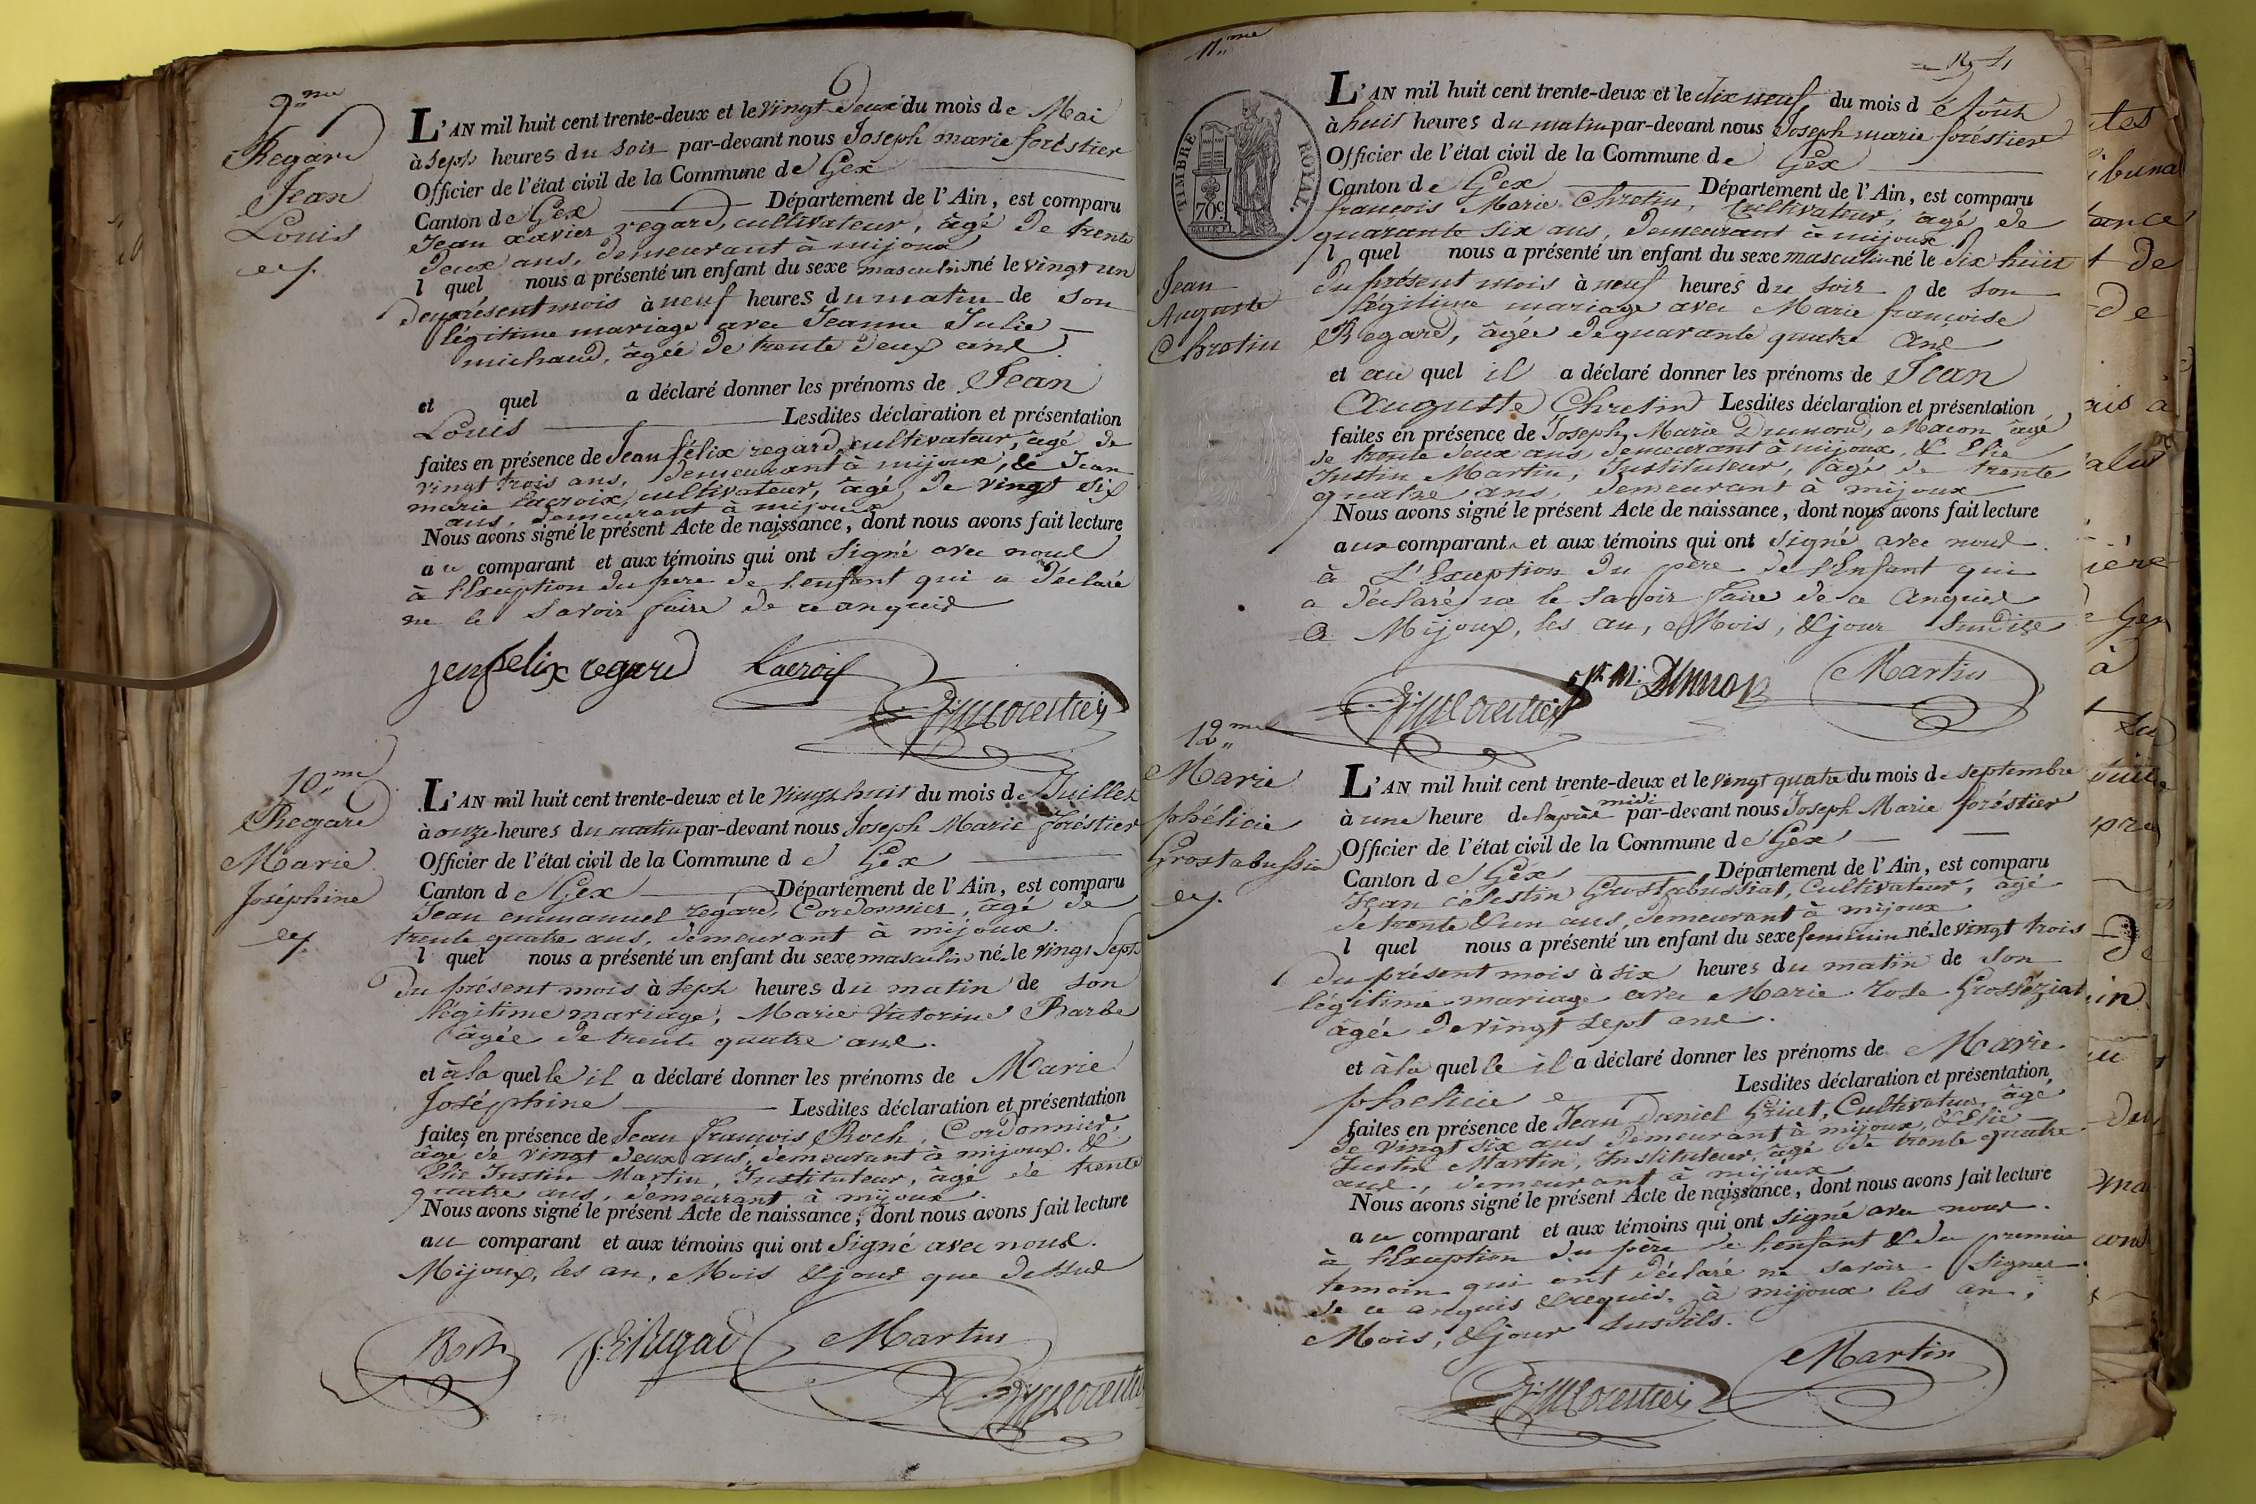 9.me
Regard
Jean
Louis
L'AN mil huit cent trente-deux et le vingt deux du mois de Mai
à sept heures du soir par-devant nous Joseph marie foréstier
Officier de l'état civil de la Commune de Gex
Canton de Gex Département de l'Ain, est comparu
Jean xavier regard, cultivateur, âgé de trente
deux ans, demeurant à mijoux
l quel nous a présenté un enfant du sexe masculin né le vingt un
du présent mois à neuf heures du matin de son
légitime mariage avec Jeanne Julie
michaud, âgée de trente deux ans
et quel a déclaré donner les prénoms de Jean
Louis Lesdites déclaration et présentation
faites en présence de Jean félix regard, cultivateur, âgé de
vingt trois ans, demeurant à mijoux, & Jean
marie Lacroix, cultivateur, âgé de vingt six
ans, demeurant à mijoux
Nous avons signé le présent Acte de naissance, dont nous avons fait lecture
au comparant et aux témoins qui ont signé avec nous
à l'Exception du père de l'enfant qui a déclaré
ne le savoir faire de ce enquis
jenfelix regard Lacroix
10.me
Regard
Marie
Joséphine
L'AN mil huit cent trente-deux et le vingt huit du mois de Juillet
à onze heures du matin par-devant nous Joseph Marie foréstier
Officier de l'état civil de la Commune de Gex
Canton de Gex Département de l'Ain, est comparu
Jean emmanuel regard, Cordonnier, âgé de
trente quatre ans, demeurant à mijoux.
l quel nous a présenté un enfant du sexe masculin né le vingt sept
du présent mois à sept heures du matin de son
légitime mariage, Marie Victorine Barbe
âgée de trente quatre ans.
et à la quelle il a déclaré donner les prénoms de Marie
Joséphine Lesdites déclaration et présentation
faites en présence de Jean françois Roch, Cordonnier,
âgé de vingt deux ans, demeurant à mijoux. &
Elie Justin Martin, Instituteur, âgé de trente
quatre ans, demeurant à mijoux.
Nous avons signé le présent Acte de naissance, dont nous avons fait lecture
au comparant et aux témoins qui ont signé avec nous.
Mijoux, les an, Mois & jour que dessus
Roch Martin
11.me
TIMBRE ROYAL.
70c
Jean
Auguste
Chretin
L'AN mil huit cent trente-deux et le dix neuf du mois d'Août
à huit heures du matin par-devant nous Joseph marie foréstier
Officier de l'état civil de la Commune de Gex
Canton de Gex Département de l'Ain, est comparu
françois Marie Chretin, Cultivateur, âgé de
quarante six ans, demeurant à mijoux
l quel nous a présenté un enfant du sexe masculin né le dix huit
du présent mois à neuf heures du soir de son
légitime mariage avec Marie françoise
Regard, âgée de quarante quatre Ans
et au quel il a déclaré donner les prénoms de Jean
Auguste Chretin Lesdites déclaration et présentation
faites en présence de Joseph Marie Dumond, Macon âgé
de trente deux ans demeurant à mijoux, & Elie
Justin Martin, Instituteur, âgé de trente
quatre ans, demeurant à mijoux
Nous avons signé le présent Acte de naissance, dont nous avons fait lecture
aux comparant et aux témoins qui ont signé avec nous.
à L'Exception du père de l'Enfant qui
a déclaré ne le savoir faire de ce Enquis
à Mijoux, les an, Mois, & jour Susdits
Martin
12.me
Marie
phélicie
Grostabussia
L'AN mil huit cent trente-deux et le vingt quatre du mois de septembre
à une heure de l'après midi par-devant nous Joseph Marie foréstier
Officier de l'état civil de la Commune de Gex
Canton de Gex Département de l'Ain, est comparu
Jean célestin Grostabussiat, Cultivateur, âgé
de trente & un ans, demeurant à mijoux
l quel nous a présenté un enfant du sexe feminin né le vingt trois
du présent mois à six heures du matin de son
légitime mariage avec Marie rose Grosséziat
âgée de vingt sept ans.
et à la quelle il a déclaré donner les prénoms de Marie
phelicie Lesdites déclaration et présentation
faites en présence de Jean Daniel Cultivateur, âgé
de vingt six ans demeurant à mijoux, & Elie
Justin Martin, Instituteur, âgé de trente quatre
ans, demeurant à mijoux
Nous avons signé le présent Acte de naissance, dont nous avons fait lecture
au comparant et aux témoins qui ont signé avec nous.
à l'Exception du père de l'enfant & du premier
temoin qui ont déclaré ne savoir signer
de ce enquis & requis. à mijoux les an,
Mois, & jour susdits.
Martin